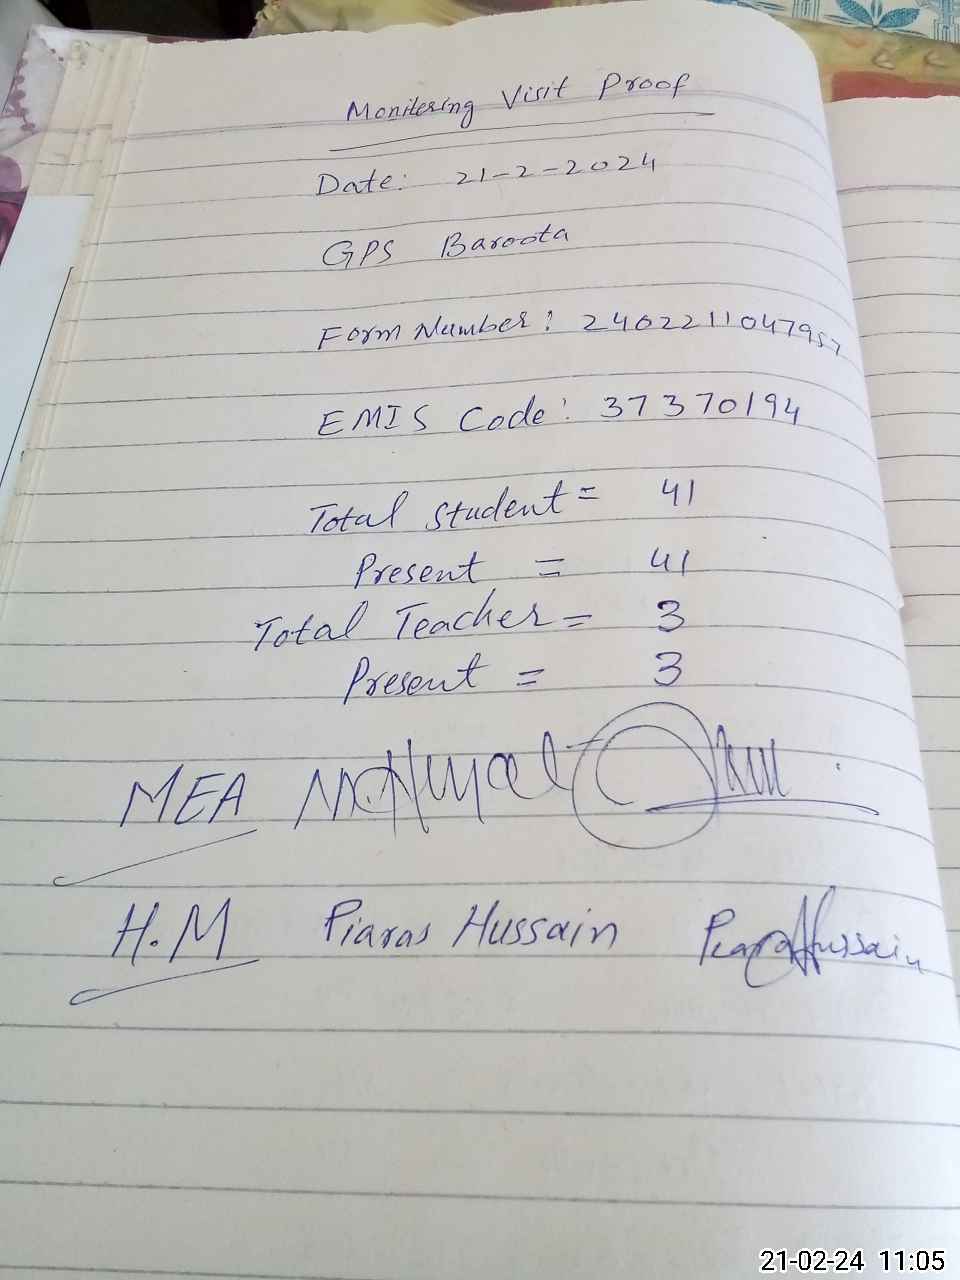 Monitering Visit Proof
Date: 21-2-2024
GPS Baroota
Form Number: 2402211047957
EMIS Code: 37370194
Total Student = 41
Present = 41
Total Teacher = 3
Present = 3
MEA
H.M Piaras Hussain Piaras Hussain
21-02-24 11:05